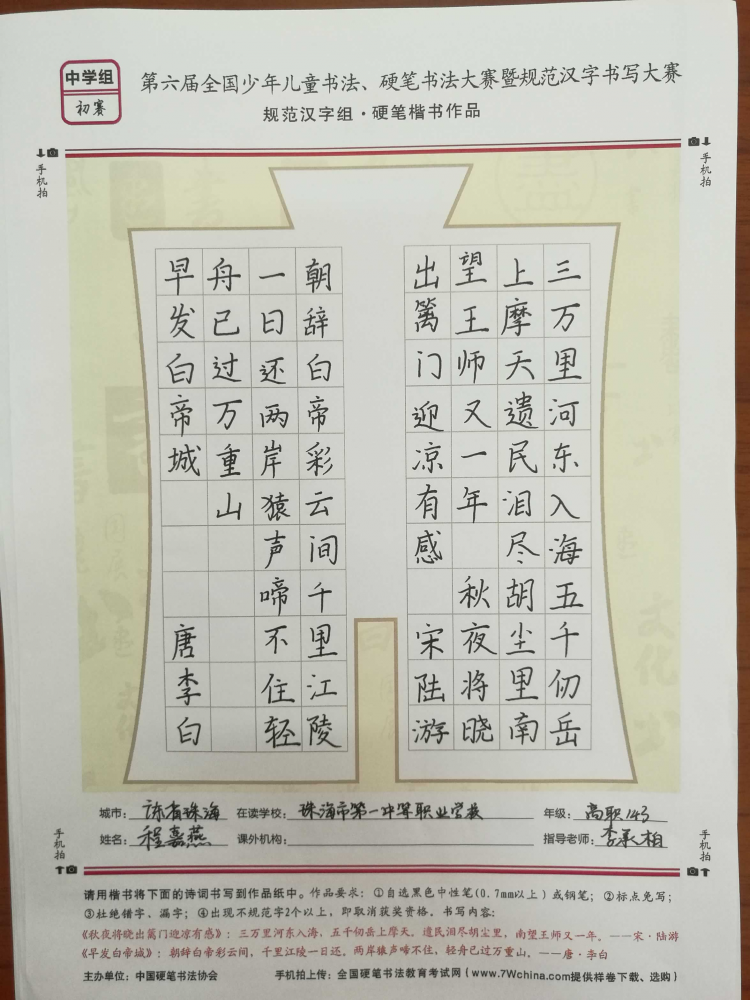 中学组
初赛
第六届全国少年儿童书法、硬笔书法大赛暨规范汉字书写大赛
规范汉字组·硬笔楷书作品
手机拍
手机拍
三万里河东入海五千仞岳
上摩天遗民泪尽胡尘里南
望王师又一年 秋夜将晓
出篱门迎凉有感 宋陆游
朝辞白帝彩云间千里江陵
一日还两岸猿声啼不住轻
舟已过万重山
早发白帝城 唐李白
城市：珠海 在读学校：珠海市第一中等职业学校 年级：高职143
姓名：程嘉燕 课外机构： 指导老师：李承柏
手机拍
手机拍
请用楷书将下面的诗词书写到作品纸中。作品要求：①自选黑色中性笔(0.7mm以上)或钢笔；②标点免写；
③杜绝错字、漏字；④出现不规范字2个以上，即取消获奖资格。书写内容：
《秋夜将晓出篱门迎凉有感》：三万里河东入海，五千仞岳上摩天。遗民泪尽胡尘里，南望王师又一年。——宋·陆游
《早发白帝城》：朝辞白帝彩云间，千里江陵一日还。两岸猿声啼不住，轻舟已过万重山。——唐·李白
主办单位：中国硬笔书法协会 手机拍上传：全国硬笔书法教育考试网（www.7Wchina.com提供样卷下载、选购）